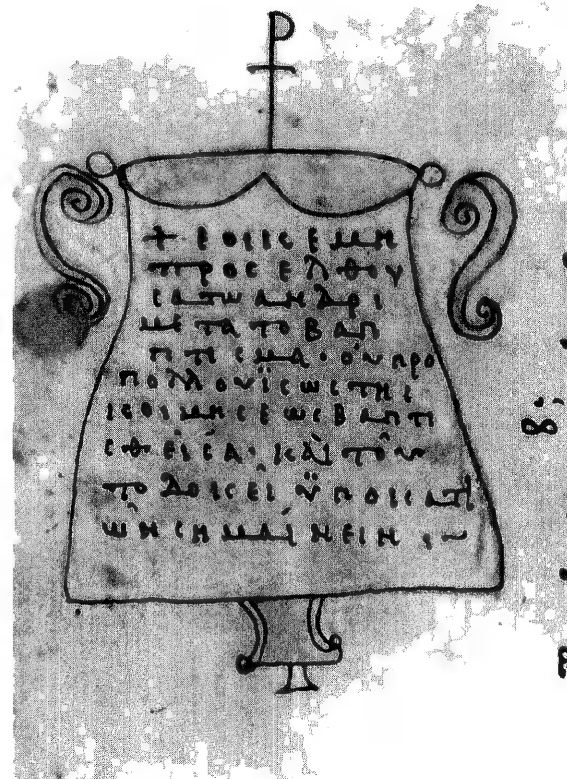 + ΕΟΙΚΕ ΜΗ
ΠΡΟCΕΛΘΟΥ
CΑ ΤΩ ΑΝΔΡΙ
ΜΕΤΑ ΤΟ ΒΑΠ
ΤΙCΜΑ· ΟΥ ΠΡΟ
ΠΟΛΛΟΥ ΪCΩC ΤΗC
ΚΟΙΜΗCΕΩC ΒΑΠΤΙ
CΘΕΙCΑ· ΚΑΙ ΤΟΥ
ΤΟ ΔΟΚΕΙ ΫΠΟΚΑΤΙ
ΩΝ CΗΜΑΙΝΕΙΝ